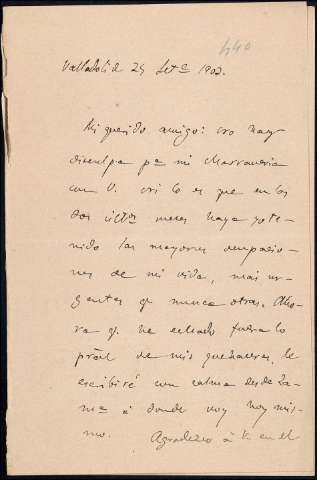 440
Valladolid 25 Set.e 1902.
Mi querido amigo: no hay
disculpa pa mi marranería
con V. ni lo es que en los
dos últos meses haya yo te-
nido las mayores ocupacio-
nes de mi vida, más ur-
gentes q. nunca otras. Aho-
ra q. he echado fuera lo
prãl de mis quehaceres, le
escribiré con calma desde Za-
ma á donde voy hoy mis-
mo. Agradezco á V. en el